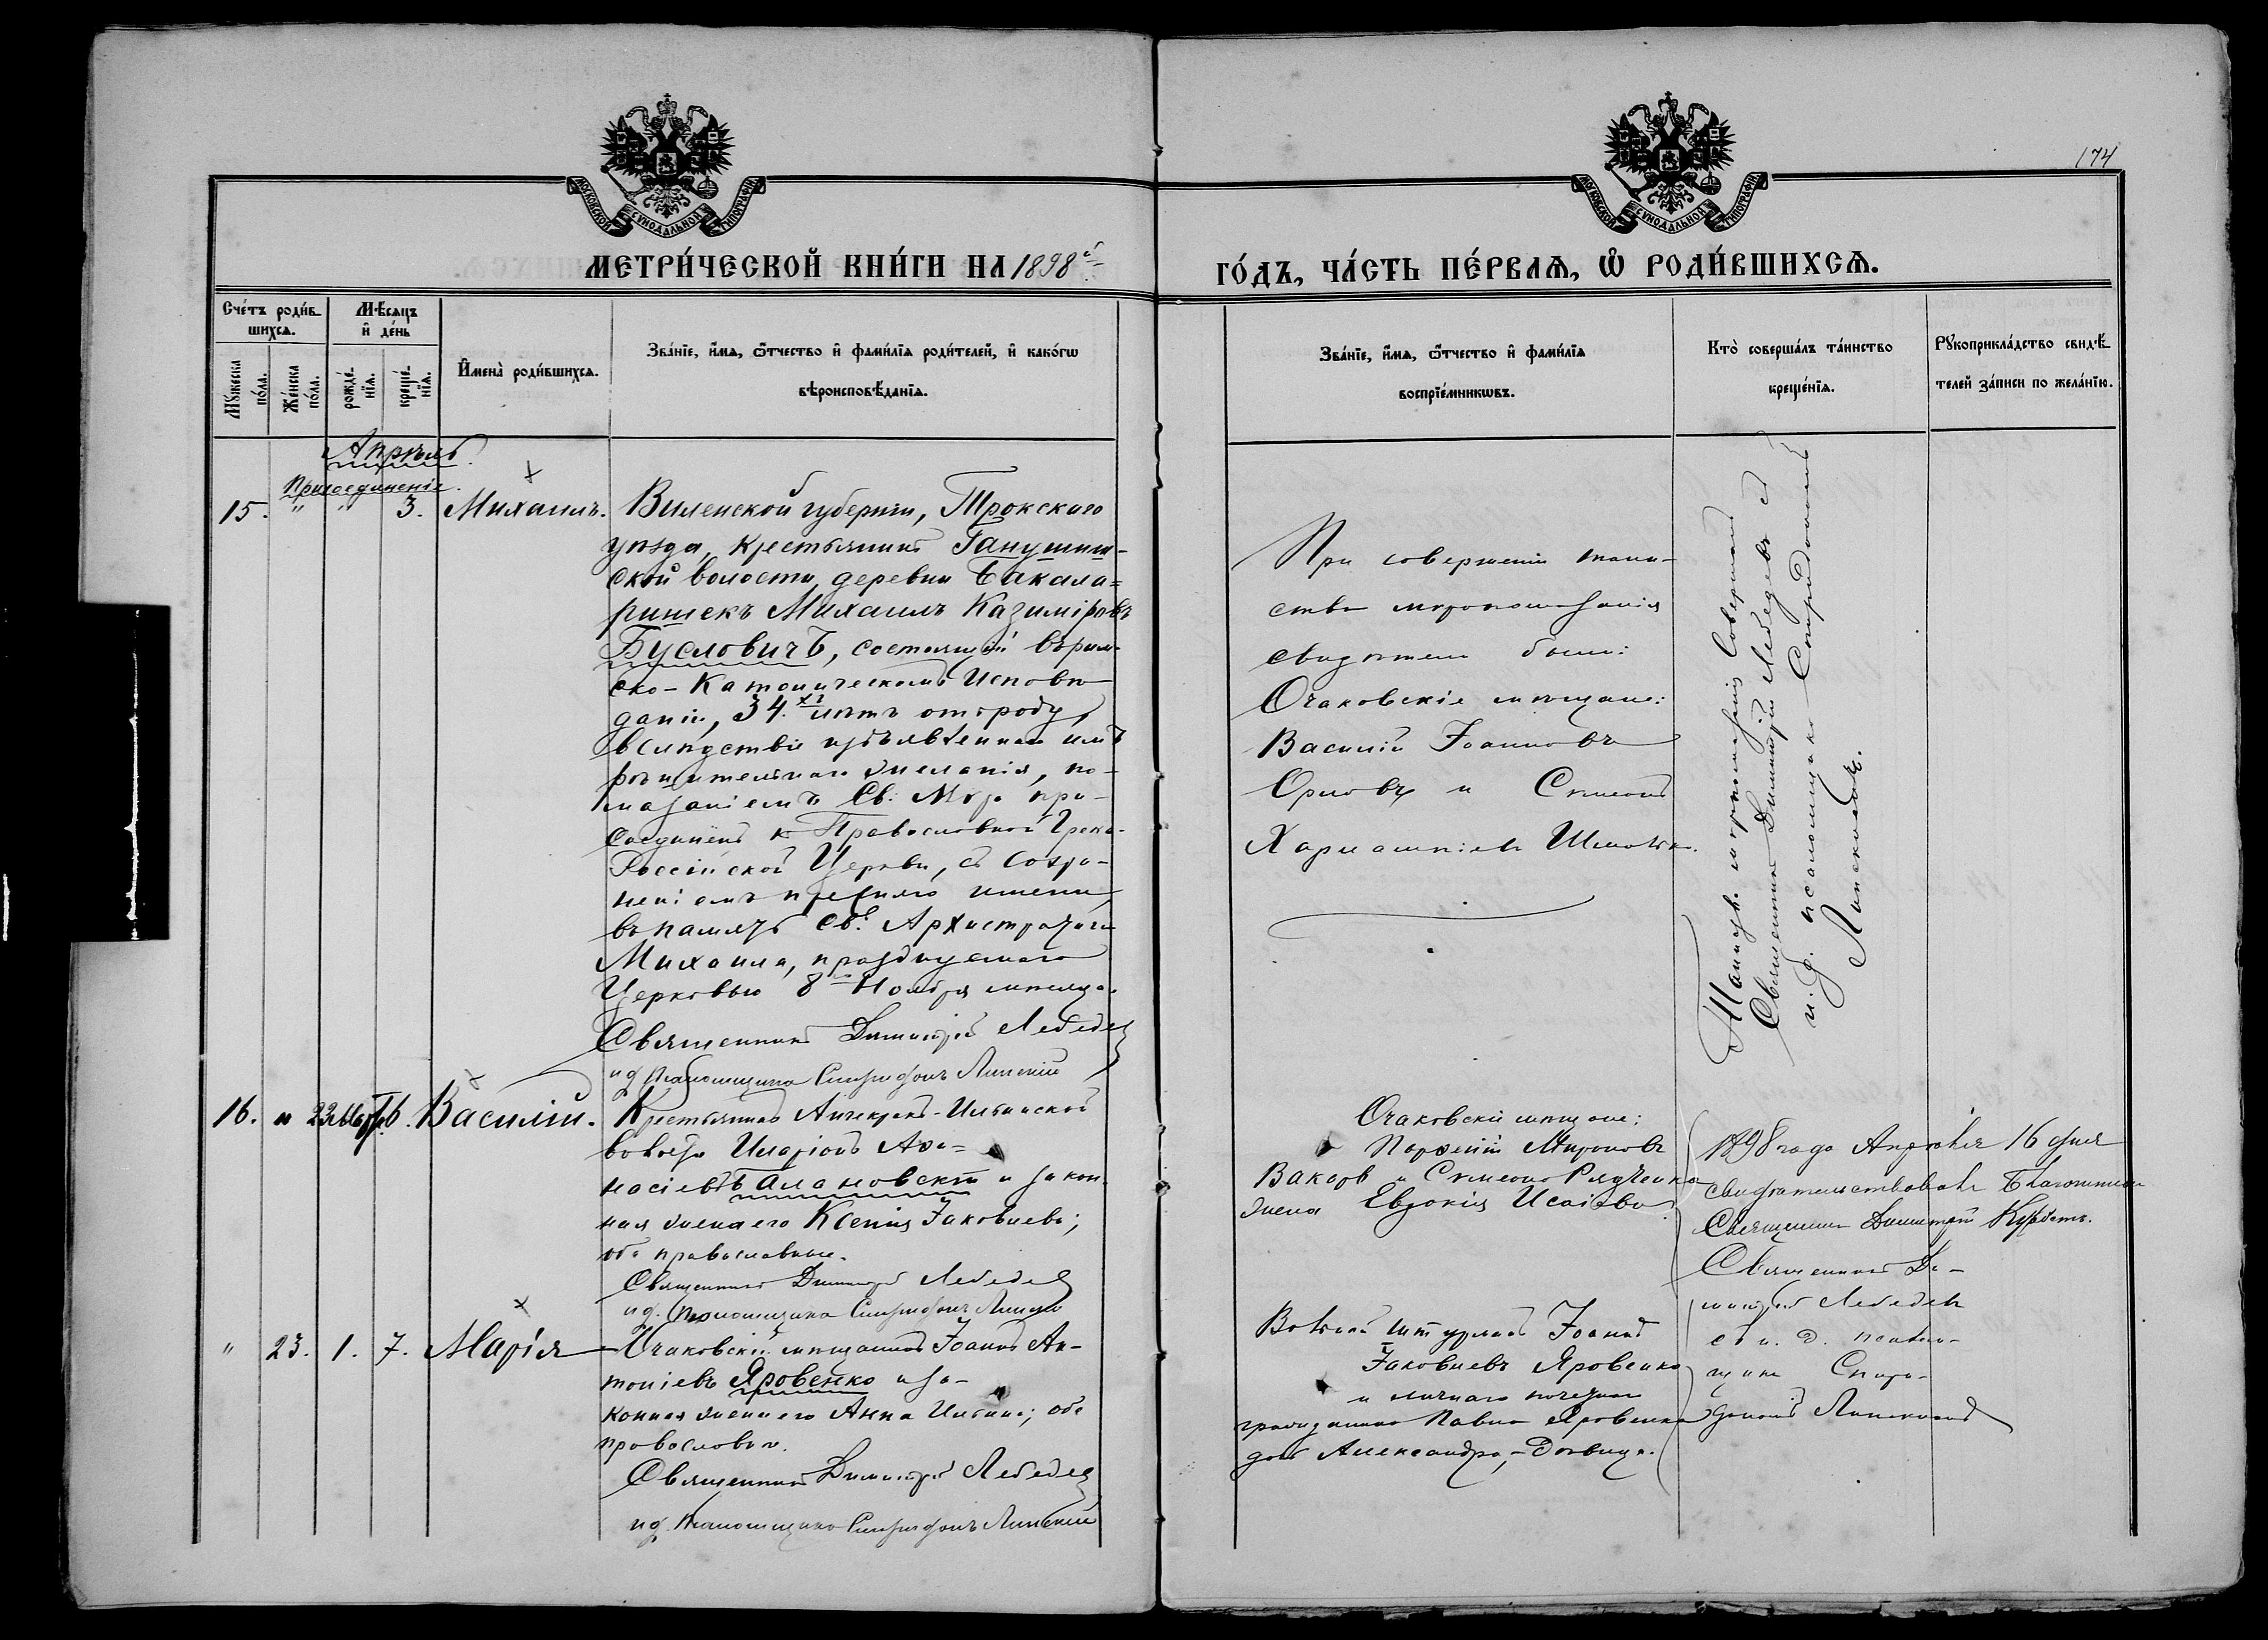 174
МОСКОВСКОЙ СУНОДАЛЬНОЙ ТИПОГРАФІИ
МОСКОВСКОЙ СУНОДАЛЬНОЙ ТИПОГРАФІИ
МЕТРИ́ЧЕСКОЙ КНИ́ГИ НА 1898й
ГО́ДЪ, ЧА́СТЬ ПЕ́РВАѦ, Ѡ҆ РОДИ́ВШИХСѦ.
Сче́тъ роди́в-
шихсѧ.
Мꙋ́жеска по́ла.
Же́нска по́ла.
Мѣ́сѧцъ
и҆ де́нь
рожде́-
нїѧ.
креще́-
нїѧ.
И҆мена̀ роди́вшихсѧ.
Зва́нїе, и҆́мѧ, ѻ҆́тчество и҆ фами́лїѧ роди́телей, и҆ како́гѡ
вѣроисповѣ́данїѧ.
Зва́нїе, и҆́мѧ, ѻ҆́тчество и҆ фами́лїѧ
воспрїе́мникѡвъ.
Кто̀ соверша́лъ та́инство
креще́нїѧ.
Рꙋкоприкла́дство свидѣ́-
телей за́писи по жела́нїю.
Апрѣль.
Присоединеніе.
15. " " 3. Михаилъ.
Виленской губерніи, Трокскаго
уѣзда, крестьянинъ Ганушиш-
ской волости, деревни Бакала-
ришекъ Михаилъ Казиміровъ
Бусловичъ, состоящій въ рим-
ско-Католическомъ Исповѣ-
даніи, 34.хъ лѣтъ отъ роду,
вслѣдствіе изъявленнаго имъ
рѣшительнаго желанія, по-
мазаніемъ Св. Мѵра при-
соединенъ къ Православной Греко-
Россійской Церкви, съ сохра-
неніемъ прежняго имени,
въ память Св. Архистратига
Михаила, празднуемаго
Церковью 8го Ноября мѣсяца.
Священникъ Димитрій Лебедевъ
ид псаломщика Спиридонъ Липскій
При совершеніи таин-
ства мѵропомазанія
свидѣтели были:
Очаковскіе мѣщане:
Василій Іоанновъ
Орловъ и Симеонъ
Харлампіевъ
Таинство мѵропомазанія совершилъ
Священникъ Димитрій Лебедевъ съ
и. д. псаломщика Спиридономъ
Липскимъ.
16. " 23 Мар. 6. Василій.
Крестьянинъ Анчекракъ-Ильинской
волости Иларіонъ Аѳа-
насіевъ Балановскій и закон-
ная жена его Ксенія Іаковлева;
оба православные.
Священникъ Димитрій Лебедевъ
ид. псаломщика Спиридонъ Липскій
Очаковскіе мѣщане:
Парѳеній Мироновъ
и Симеона
жена Евдокія Исаіева
1898 года Апрѣля 16 дня
свидѣтельствовалъ Благочинный
Священникъ Димитрій
Священникъ Ди-
митрій Лебедевъ
съ и. д. псалом-
щика Спири-
дономъ Липскимъ
" 23. 1. 7. Марія
Очаковскій мѣщанинъ Іоаннъ Ан-
тоніевъ Яровенко и за-
конная жена его Анна Ильина; оба
православн.
Священникъ Димитрій Лебедевъ
ид. псаломщика Спиридонъ Липскій
Вольный штурманъ Іоаннъ
Іаковлевъ Яровенко
и личнаго почетнаго
гражданина Павла Яровенка
дочь Александра,-дѣвица.